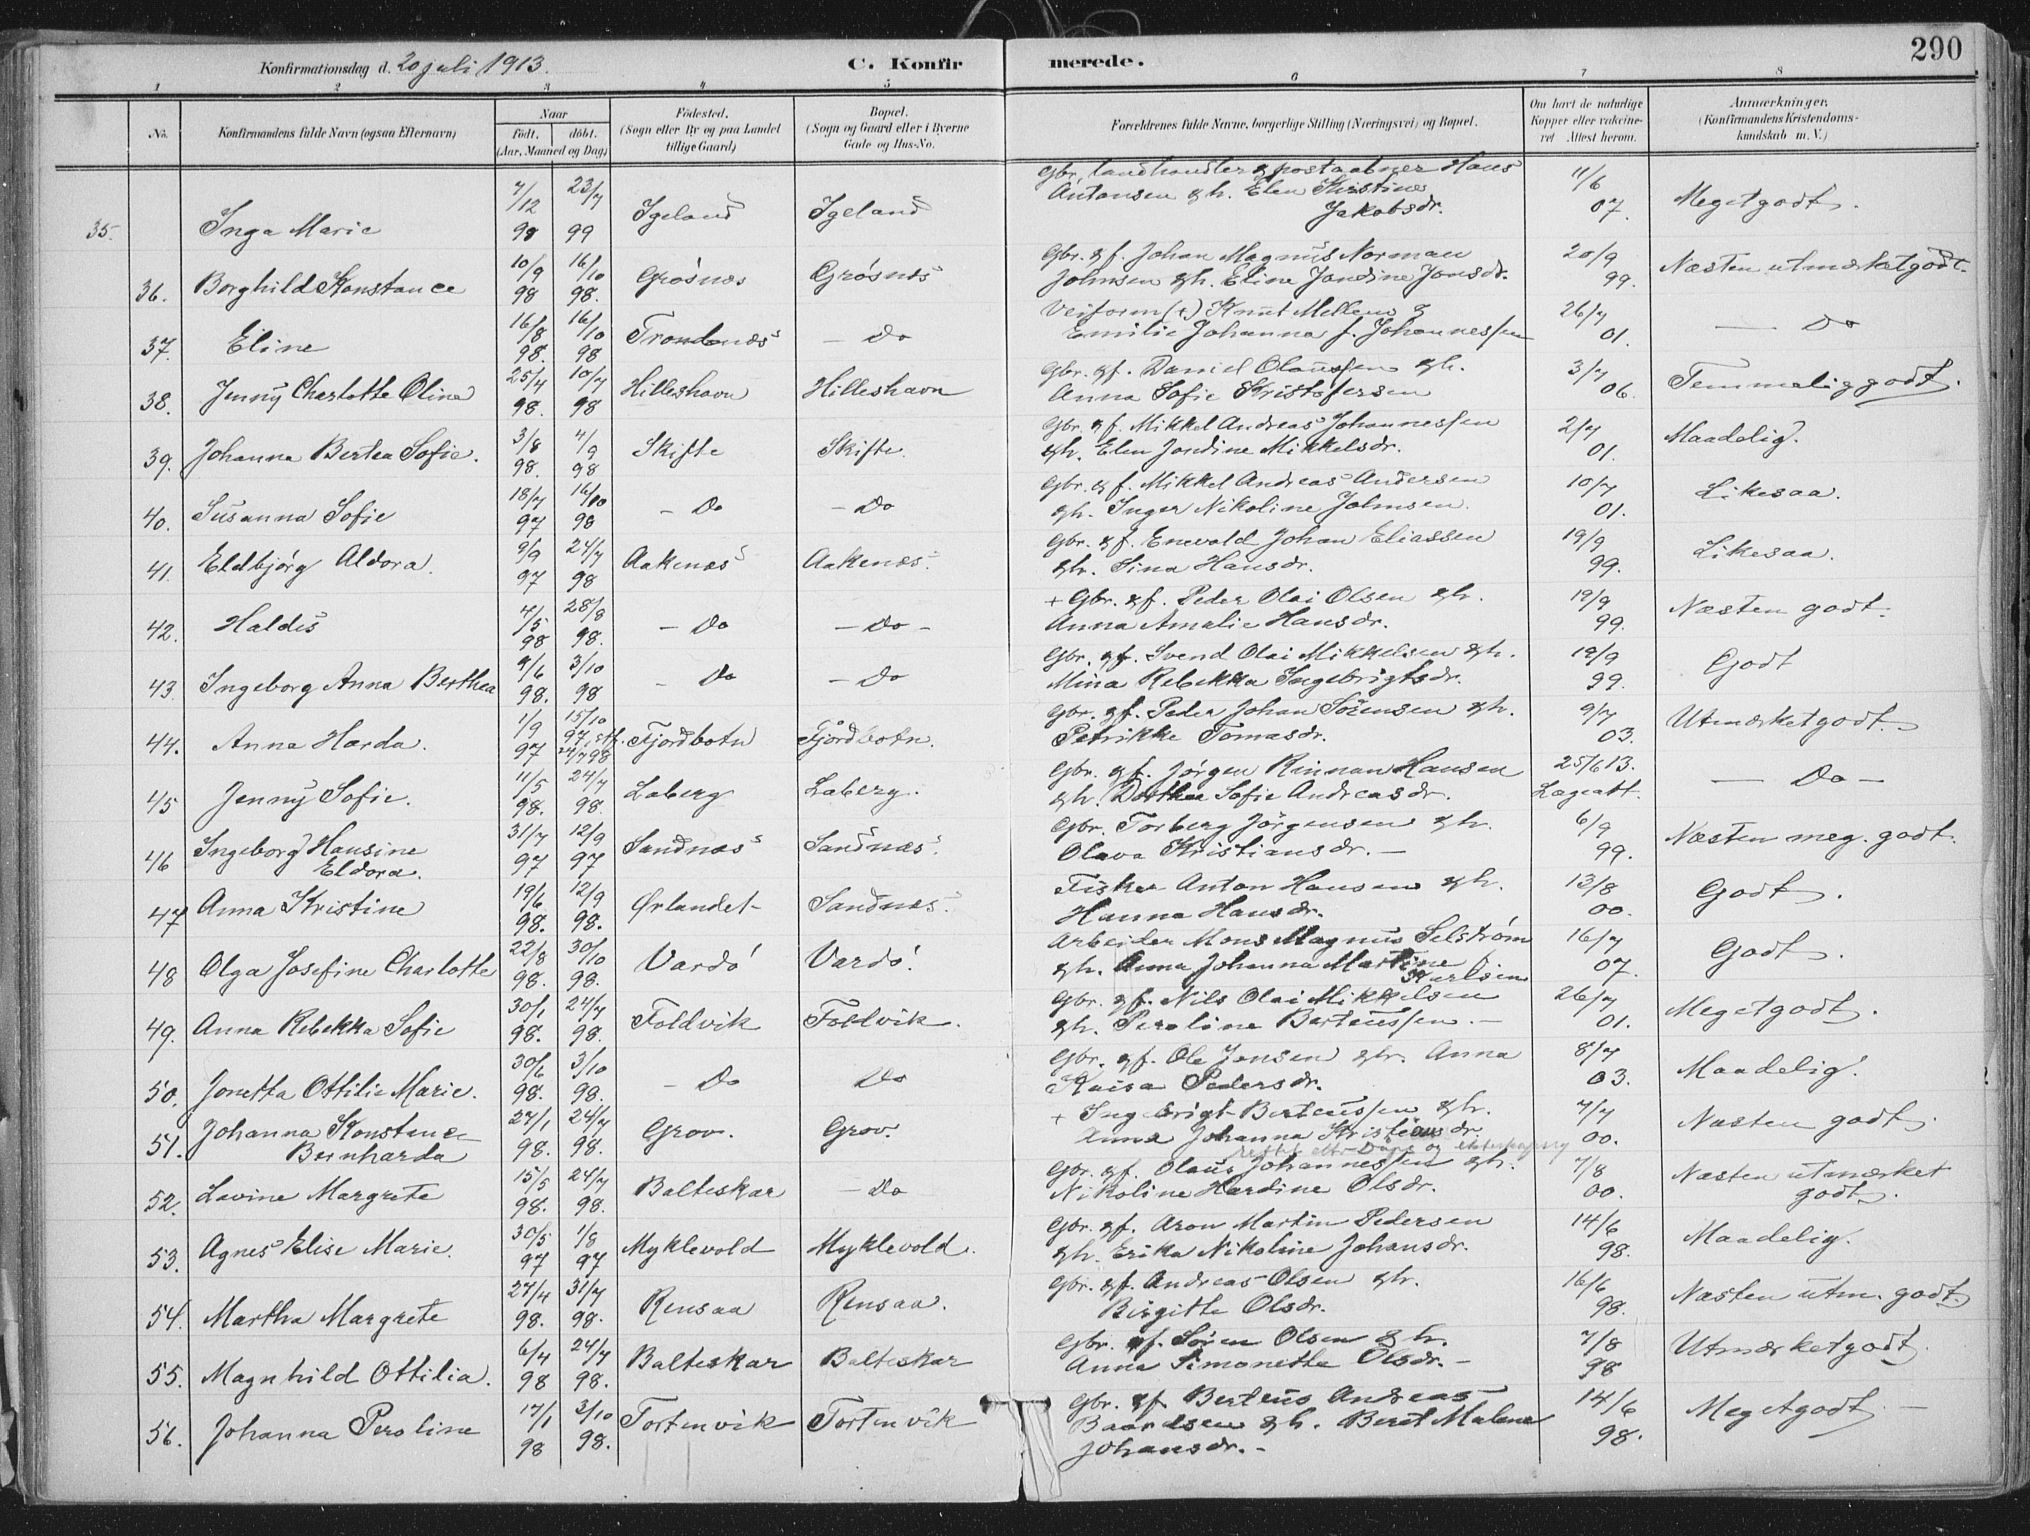 290
Konfirmationsdag d. 20 juli 1913.
C. Konfirmerede.
1 2 3 4 5 6 7 8
No.
Konfirmandens fulde Navn (ogsaa Efternavn)
Naar
født. døbt.
(Aar, Maaned og Dag)
Fødested.
(Sogn eller By og paa Landet
tillige Gaard)
Bopæl.
(Sogn og Gaard eller i Byerne
Gade og Hus-No.
Forældrenes fulde Navne, borgerlige Stilling (Næringsvei) og Bopæl.
Om havt de naturlige
Kopper eller vaccine-
ret Attest herom.
Anmærkninger.
(Konfirmandens Kristendoms-
kundskab m. V.)
35. Inga Marie 7/12 98 23/7 99 Igeland Igeland
Gbr. landhandler & postaabner Hans
Antonsen & h. Elen Kristine
Jakobsdr.
11/6 07. Megetgodt.
36. Borghild Konstance 10/9 98 16/10 98. Grøsnæs Grøsnæs
Gbr. & f. Johan Magnus Norman
Johnsen & h. Eline Jandine Jonsdr.
20/9 99. Næsten utmærketgodt.
37. Eline 16/8 98. 16/10 98 Trondenæs — Do
Veiform (+) Knut Mellem &
Emilie Johanna f. Johannessen
26/7 01. — Do
38. Jenny Charlotte Oline 25/4 98. 10/7 98 Hilleshavn Hilleshavn
Gbr. & f. Daniel Olaussen & h.
Anna Sofie Kristofersen
3/7 06. Temmeliggodt.
39. Johanna Bertea Sofie. 3/8 98. 4/9 98 Skifte Skifte.
Gbr. & f. Mikkel Andreas Johannessen
& h. Elen Jordine Mikkelsdr.
2/7 01. Maadelig.
40. Susanna Sofie 18/7 97 16/10 98 — Do — Do
Gbr. & f. Mikkel Andreas Andersen
& h. Inger Nikoline Johnsen.
10/7 01. Likesaa.
41. Eldbjørg Aldora. 9/9 97 24/7 98 Aakenæs Aakenæs.
Gbr. & f. Enevald Johan Eliassen
& h. Sina Hansdr.
19/9 99. Likesaa.
42. Haldis 7/5 98 28/8 98. — Do — Do —
+ Gbr. & f. Peder Olai Olsen & h.
Anna Amalie Hansdr.
19/9 99. Næsten godt.
43. Ingeborg Anna Berthea 9/6 98. 3/10 98 — Do — Do
Gbr. & f. Svend Olai Mikkelsen & h.
Mina Rebekka Ingebrigtsdr.
19/9 99. Godt
44. Anna Harda. 1/9 97 15/10 97, stf. 24/7 98 Fjordbotn Fjordbotn.
Gbr. & f. Peder Johan Sørensen & h.
Petrikke Tomasdr.
9/7 03. Utmærketgodt.
45 Jenny Sofie. 11/5 98. 24/7 98. Laberg Laberg.
Gbr. & f. Jørgen Rinnan Hansen
& h. Dorthea Sofie Andreasdr.
25/6 13. Lægeatt. — Do —
46 Ingeborg Hansine
Eldora. 31/7 97 12/9 97 Sandnæs Sandnæs.
Gbr. Torberg Jørgensen & h.
Olava Kristiansdr. —
6/9 99. Næsten meg. godt.
47 Anna Kristine 19/6 98. 12/9 98. Ørlandet Sandnæs.
Fisker Anton Hansen & h.
Hanna Hansdr.
13/8 00. Godt.
48 Olga Josefine Charlotte 22/8 98. 30/10 98. Vardø Vardø.
Arbeider Mons Magnus Selstrøm
& h. Anna Johanna Martine
Karlsen
16/7 07. Godt.
49. Anna Rebekka Sofie 30/1 98. 24/7 98. Foldvik Foldvik.
Gbr. & f. Nils Olai Mikkelsen
& h. Peroline Berteussen. —
26/7 01. Megetgodt.
50. Jonetta Ottilie Marie. 30/6 98. 3/10 98. — Do Do
Gbr. & f. Ole Jensen & h. Anna
Kaisa Pedersdr.
8/7 03. Maadelig.
51. Johanna Konstance
Bernharda 27/1 98. 24/7 98. Grov. Grov.
+ Ingebrigt Berteussen & h.
Anna Johanna Kristiansdr.
7/7 00. Næsten godt.
52. Lavine Margrete 15/5 98. 24/7 98. Balteskar — Do
Gbr. & f. Olaus Johannessen & h.
Nikoline Hardine Olsdr.
7/8 00. Næsten utmærket
godt.
53. Agnes Elise Marie. 30/5 97 1/8 97 Myklevold Myklevold.
Gbr. & f. Aron Martin Pedersen
& h. Erika Nikoline Johansdr.
14/6 98. Maadelig.
54. Martha Margrete 27/4 98. 31/7 98. Rensaa Rensaa.
Gbr. & f. Andreas Olsen & h.
Birgitte Olsdr.
16/6 98. Næsten utm. godt.
55. Magnhild Ottilia. 6/4 98 24/7 98. Balteskar Balteskar
Gbr. & f. Søren Olsen & h.
Anna Simonette Olsdr. —
7/8 98 Utmærketgodt.
56. Johanna Peroline 17/1 98 3/10 98. Tortenvik Tortenvik
Gbr. & f. Berteus Andreas
Baardsen & h. Berit Malene
Johansdr. —
14/6 98. Megetgodt. —